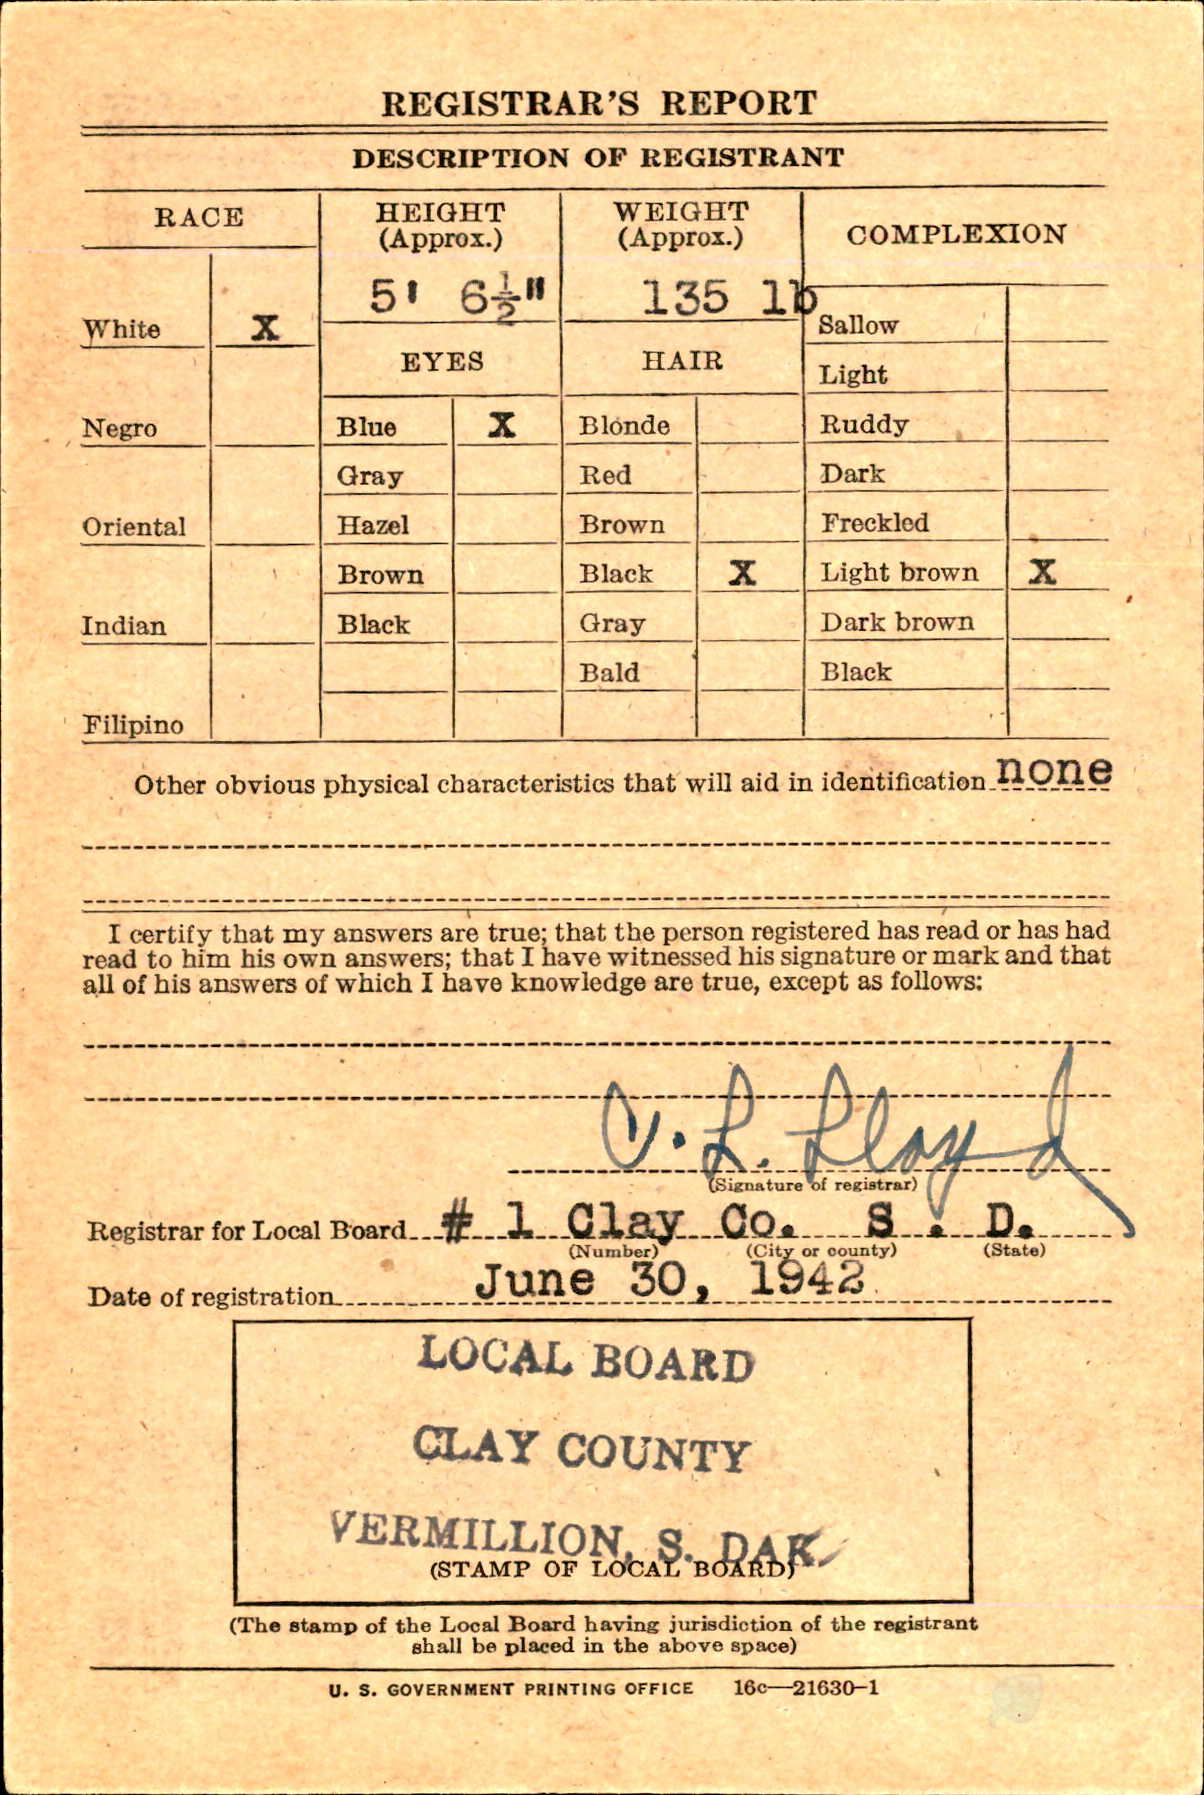 REGISTRAR'S REPORT
DESCRIPTION OF REGISTRANT
RACE
HEIGHT
(Approx.)
WEIGHT
(Approx.)
COMPLEXION
5' 6½"
135 lb
White X
Sallow
EYES
HAIR
Light
Negro
Blue X
Blonde
Ruddy
Gray
Red
Dark
Oriental
Hazel
Brown
Freckled
Brown
Black X
Light brown X
Indian
Black
Gray
Dark brown
Bald
Black
Filipino
Other obvious physical characteristics that will aid in identification none
I certify that my answers are true; that the person registered has read or has had
read to him his own answers; that I have witnessed his signature or mark and that
all of his answers of which I have knowledge are true, except as follows:
L. Lloyd
(Signature of registrar)
Registrar for Local Board # 1 Clay Co. S. D.
(Number) (City or county) (State)
Date of registration June 30, 1942
LOCAL BOARD
CLAY COUNTY
VERMILLION, S. DAK.
(STAMP OF LOCAL BOARD)
(The stamp of the Local Board having jurisdiction of the registrant
shall be placed in the above space)
U. S. GOVERNMENT PRINTING OFFICE 16c—21630-1